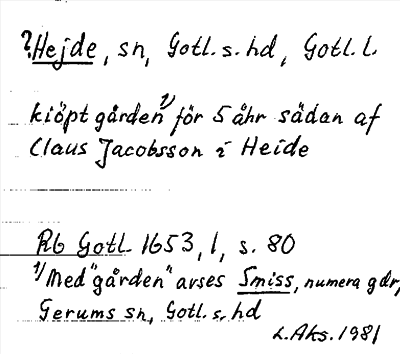 ?Hejde, sn, Gotl. s. hd, Gotl. l.
kiöpt gården 1) för 5 åhr sädan af
Claus Jacobsson i Heide
Rb Gotl. 1653, 1, s. 80
1) Med "gården" avses Smiss, numera gdr,
Gerums sn, Gotl. s. hd
L. Aks. 1981